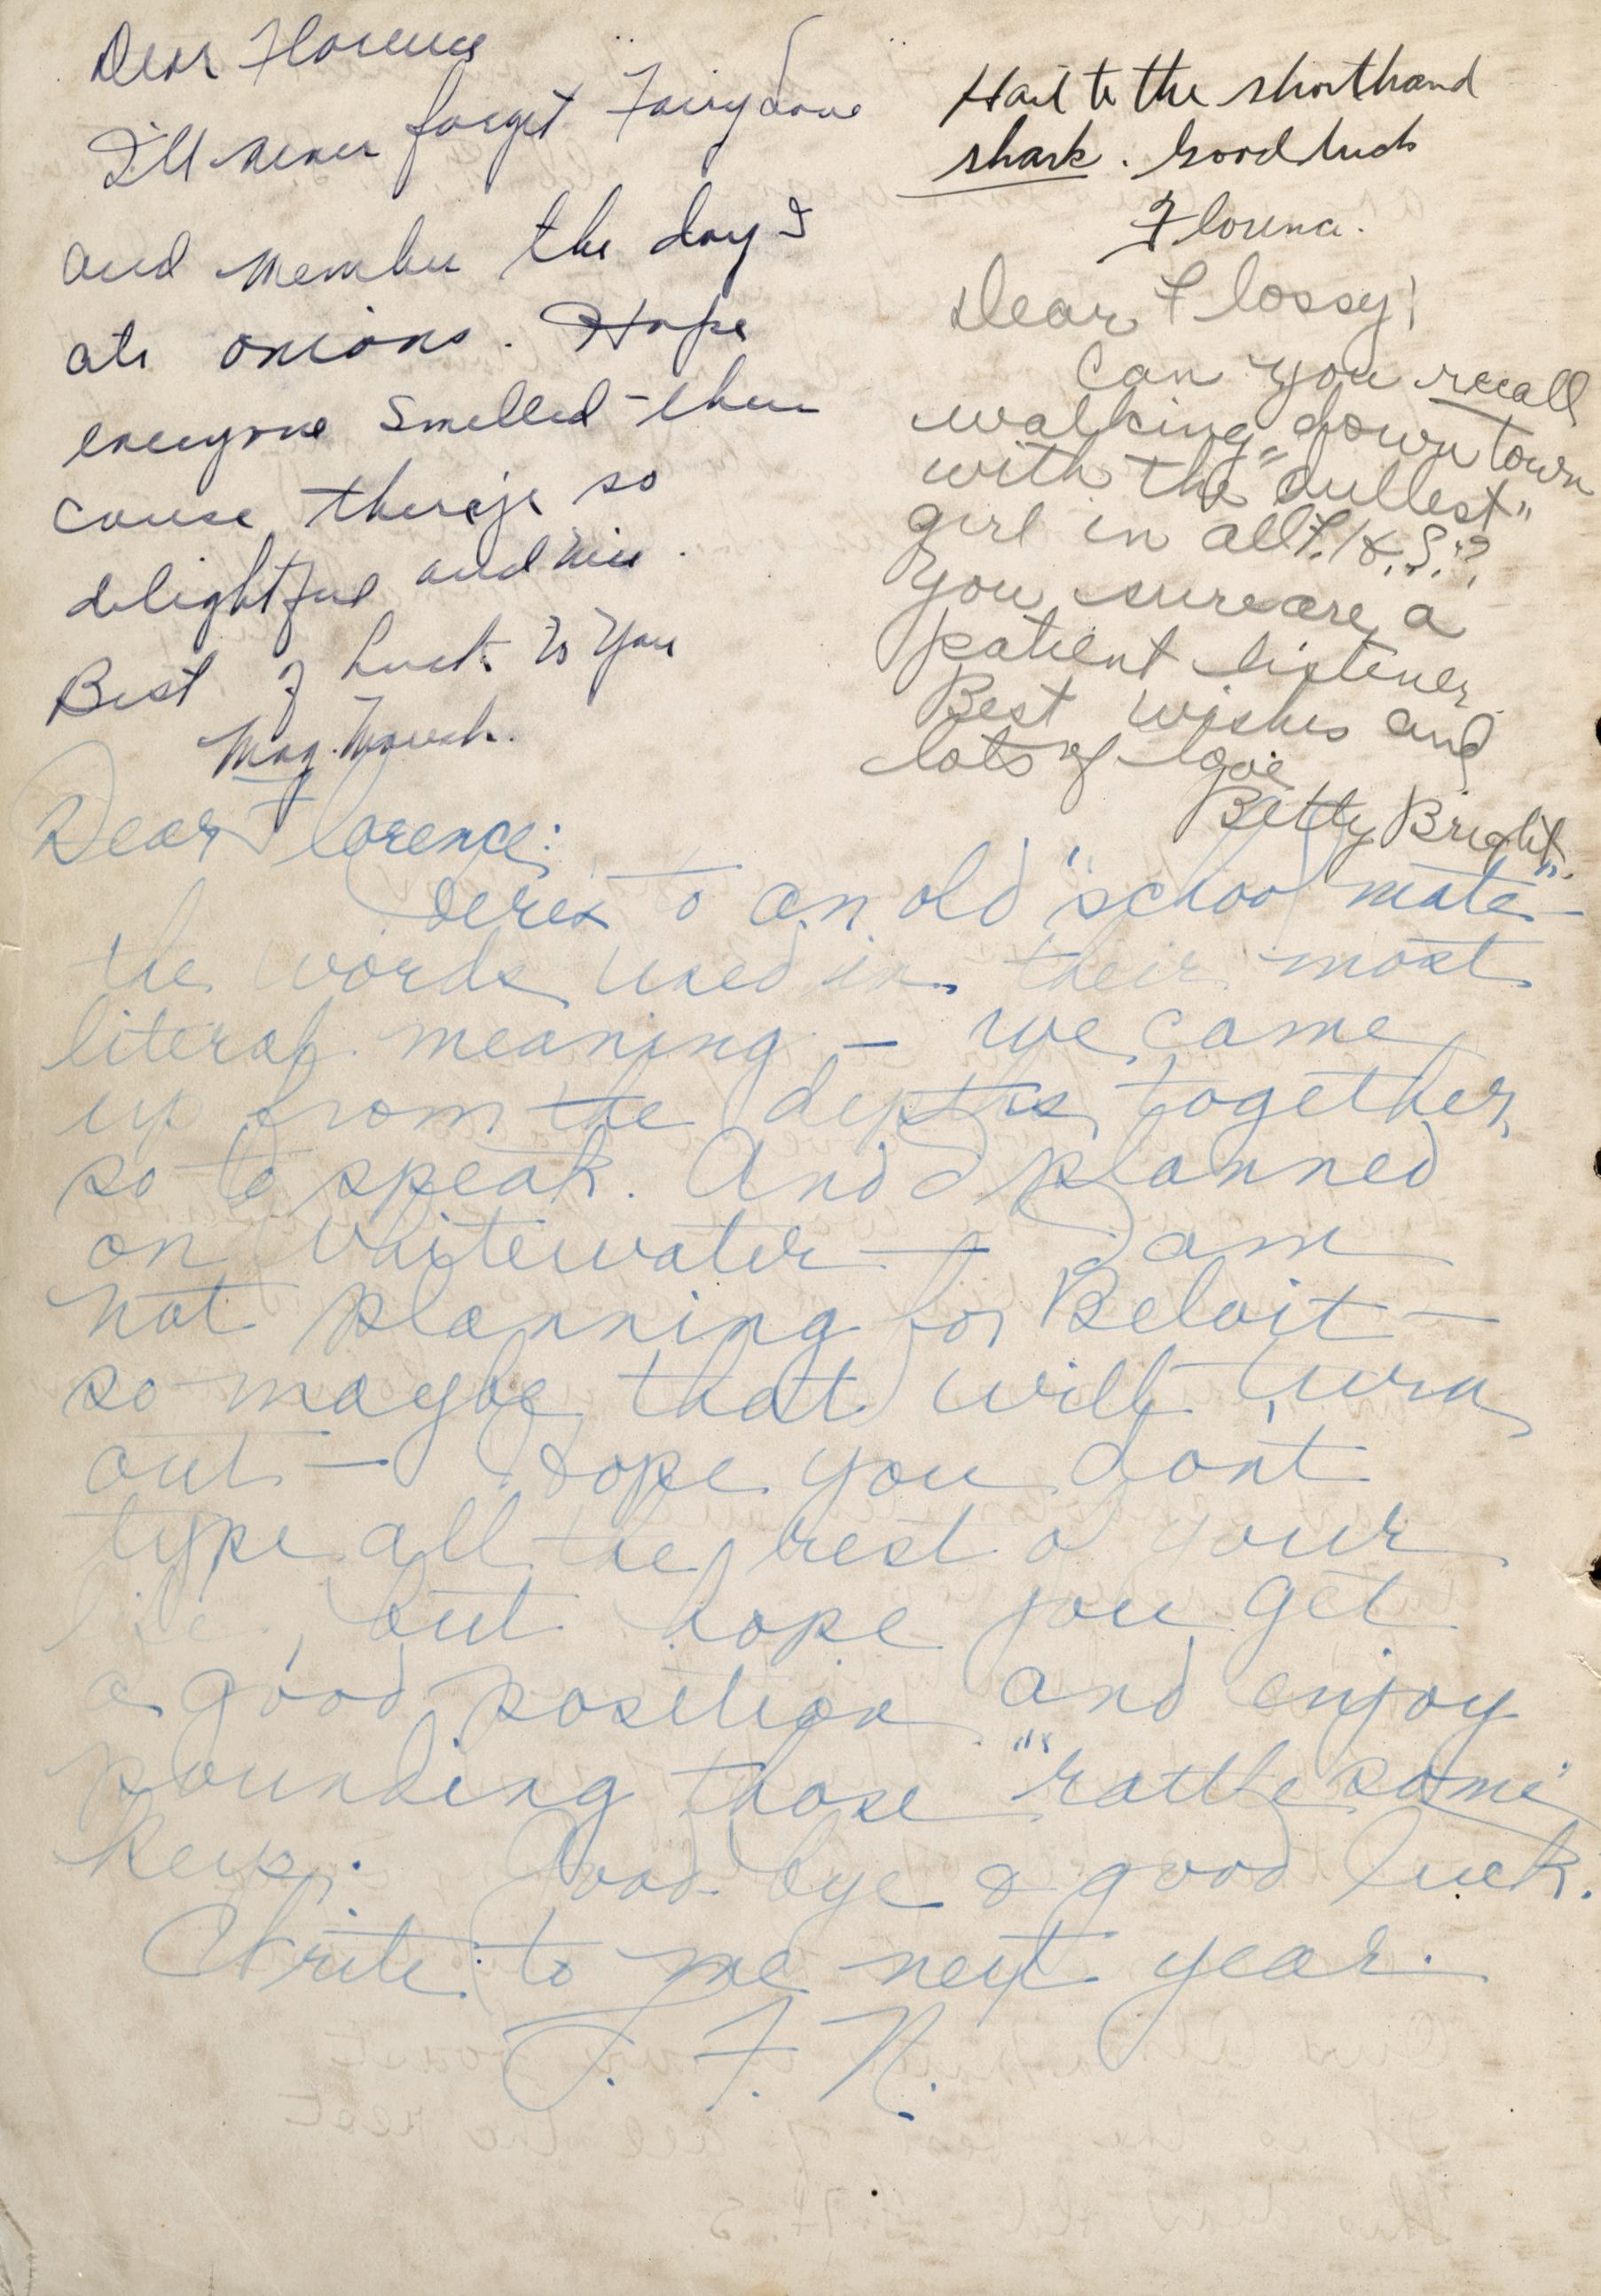 Dear Florence
I'll never forget Fairydove
and member the day I
ate onions. Hope
everyone smelled them
cause they're so
delightful and nice.
Best of Luck to You
Mag.
Hail to the shorthand
shark. Good luck
Florence.
Dear Flossy!
Can you recall
walking down town
with the "dullest"
girl in all F.H.S.?
You sure are a
patient listener.
Best wishes and
lots of love
Betty Bright.
Dear Florence:
Here's to an old "school mate" –
the words used in their most
literal meaning – we came
up from the depths together,
so to speak. And I planned
on Whitewater – I am
not planning for Beloit –
so maybe that will turn
out – Hope you don't
type all the rest of your
life, but hope you get
a good position and enjoy
pounding those "rattlesome"
keys. Good-bye & good luck.
Write to me next year.
F. F. N.